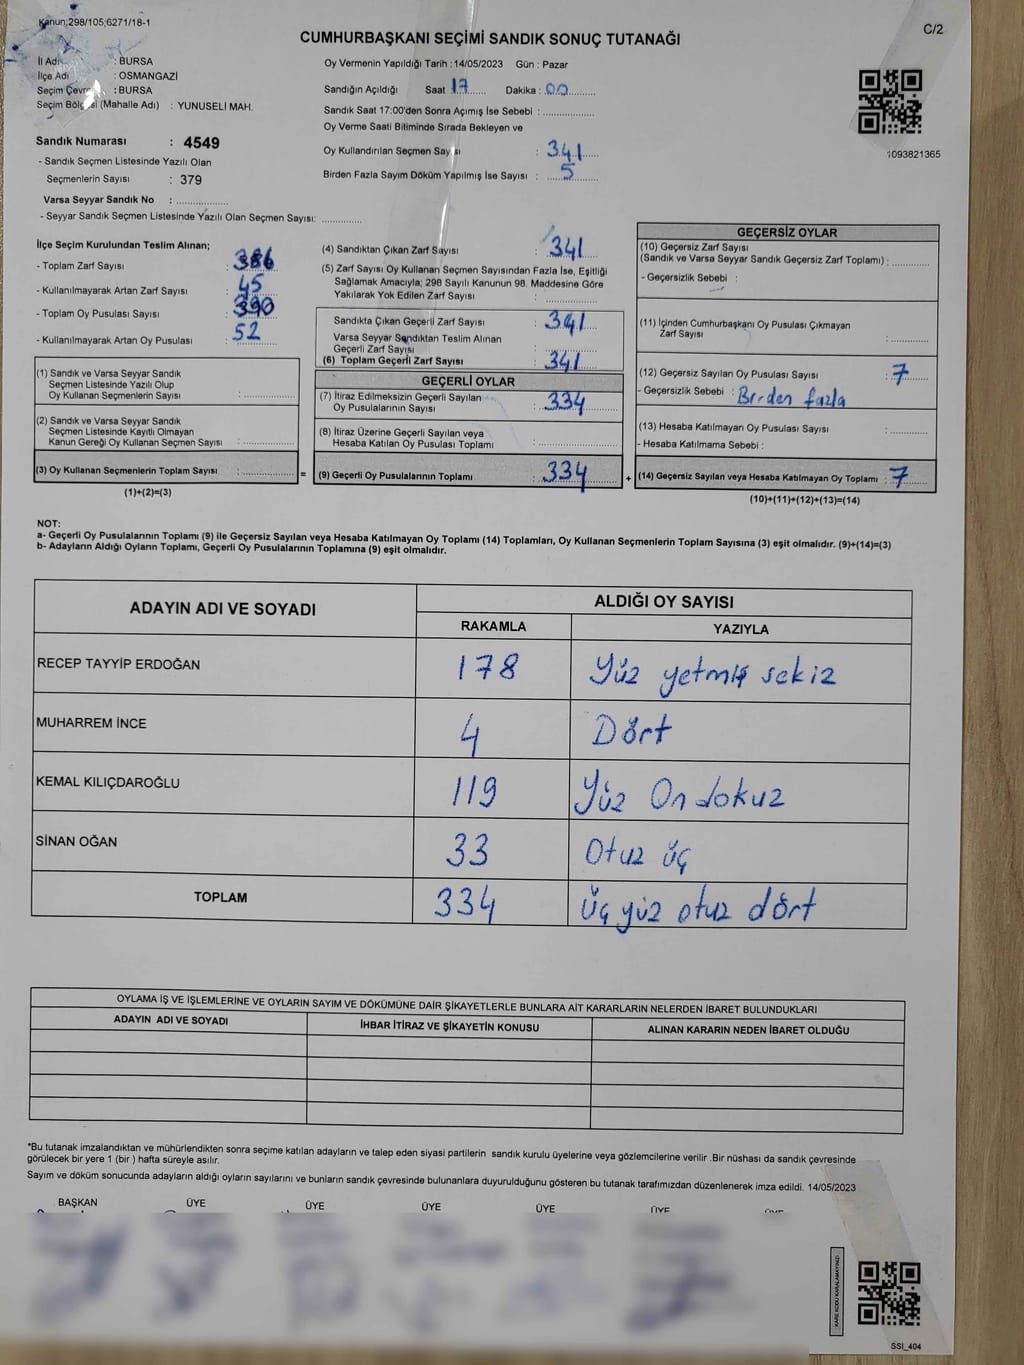 Kanun;298/105;6271/18-1
C/2
CUMHURBAŞKANI SEÇİMİ SANDIK SONUÇ TUTANAĞI
İl Adı : BURSA
İlçe Adı : OSMANGAZİ
Seçim Çevresi : BURSA
Seçim Bölgesi (Mahalle Adı) : YUNUSELİ MAH.
Sandık Numarası : 4549
- Sandık Seçmen Listesinde Yazılı Olan
Seçmenlerin Sayısı : 379
Varsa Seyyar Sandık No : ................
- Seyyar Sandık Seçmen Listesinde Yazılı Olan Seçmen Sayısı: ............
Oy Vermenin Yapıldığı Tarih : 14/05/2023 Gün : Pazar
Sandığın Açıldığı Saat 17 Dakika : 00
Sandık Saat 17:00'den Sonra Açımış İse Sebebi : ................
Oy Verme Saati Bitiminde Sırada Bekleyen ve
Oy Kullandırılan Seçmen Sayısı : 341
Birden Fazla Sayım Döküm Yapılmış İse Sayısı : 5
1093821365
İlçe Seçim Kurulundan Teslim Alınan;
- Toplam Zarf Sayısı : 386
- Kullanılmayarak Artan Zarf Sayısı : 45
- Toplam Oy Pusulası Sayısı : 390
- Kullanılmayarak Artan Oy Pusulası : 52
(1) Sandık ve Varsa Seyyar Sandık
Seçmen Listesinde Yazılı Olup
Oy Kullanan Seçmenlerin Sayısı : ................
(2) Sandık ve Varsa Seyyar Sandık
Seçmen Listesinde Kayıtlı Olmayan
Kanun Gereği Oy Kullanan Seçmen Sayısı : ................
(3) Oy Kullanan Seçmenlerin Toplam Sayısı : ................ =
(1)+(2)=(3)
(4) Sandıktan Çıkan Zarf Sayısı : 341
(5) Zarf Sayısı Oy Kullanan Seçmen Sayısından Fazla İse, Eşitliği
Sağlamak Amacıyla; 298 Sayılı Kanunun 98. Maddesine Göre
Yakılarak Yok Edilen Zarf Sayısı : ................
Sandıkta Çıkan Geçerli Zarf Sayısı : 341
Varsa Seyyar Sandıktan Teslim Alınan
Geçerli Zarf Sayısı
(6) Toplam Geçerli Zarf Sayısı : 341
GEÇERLİ OYLAR
(7) İtiraz Edilmeksizin Geçerli Sayılan
Oy Pusulalarının Sayısı : 334
(8) İtiraz Üzerine Geçerli Sayılan veya
Hesaba Katılan Oy Pusulası Toplamı : ................
(9) Geçerli Oy Pusulalarının Toplamı : 334 +
GEÇERSİZ OYLAR
(10) Geçersiz Zarf Sayısı
(Sandık ve Varsa Seyyar Sandık Geçersiz Zarf Toplamı) : ............
- Geçersizlik Sebebi :
(11) İçinden Cumhurbaşkanı Oy Pusulası Çıkmayan
Zarf Sayısı : ............
(12) Geçersiz Sayılan Oy Pusulası Sayısı : 7
- Geçersizlik Sebebi : Birden fazla
(13) Hesaba Katılmayan Oy Pusulası Sayısı : ............
- Hesaba Katılmama Sebebi :
(14) Geçersiz Sayılan veya Hesaba Katılmayan Oy Toplamı : 7
(10)+(11)+(12)+(13)=(14)
NOT:
a- Geçerli Oy Pusulalarının Toplamı (9) ile Geçersiz Sayılan veya Hesaba Katılmayan Oy Toplamı (14) Toplamları, Oy Kullanan Seçmenlerin Toplam Sayısına (3) eşit olmalıdır. (9)+(14)=(3)
b- Adayların Aldığı Oyların Toplamı, Geçerli Oy Pusulalarının Toplamına (9) eşit olmalıdır.
ADAYIN ADI VE SOYADI ALDIĞI OY SAYISI
RAKAMLA YAZIYLA
RECEP TAYYİP ERDOĞAN 178 Yüz yetmiş sekiz
MUHARREM İNCE 4 Dört
KEMAL KILIÇDAROĞLU 119 Yüz On dokuz
SİNAN OĞAN 33 Otuz üç
TOPLAM 334 üç yüz otuz dört
OYLAMA İŞ VE İŞLEMLERİNE VE OYLARIN SAYIM VE DÖKÜMÜNE DAİR ŞİKAYETLERLE BUNLARA AİT KARARLARIN NELERDEN İBARET BULUNDUKLARI
ADAYIN ADI VE SOYADI İHBAR İTİRAZ VE ŞİKAYETİN KONUSU ALINAN KARARIN NEDEN İBARET OLDUĞU
*Bu tutanak imzalandıktan ve mühürlendikten sonra seçime katılan adayların ve talep eden siyasi partilerin sandık kurulu üyelerine veya gözlemcilerine verilir .Bir nüshası da sandık çevresinde
görülecek bir yere 1 (bir ) hafta süreyle asılır.
Sayım ve döküm sonucunda adayların aldığı oyların sayılarını ve bunların sandık çevresinde bulunanlara duyurulduğunu gösteren bu tutanak tarafımızdan düzenlenerek imza edildi. 14/05/2023
BAŞKAN ÜYE ÜYE ÜYE ÜYE ÜYE ÜYE
KARE KODU KARALAMAYINIZ!
SSI_404